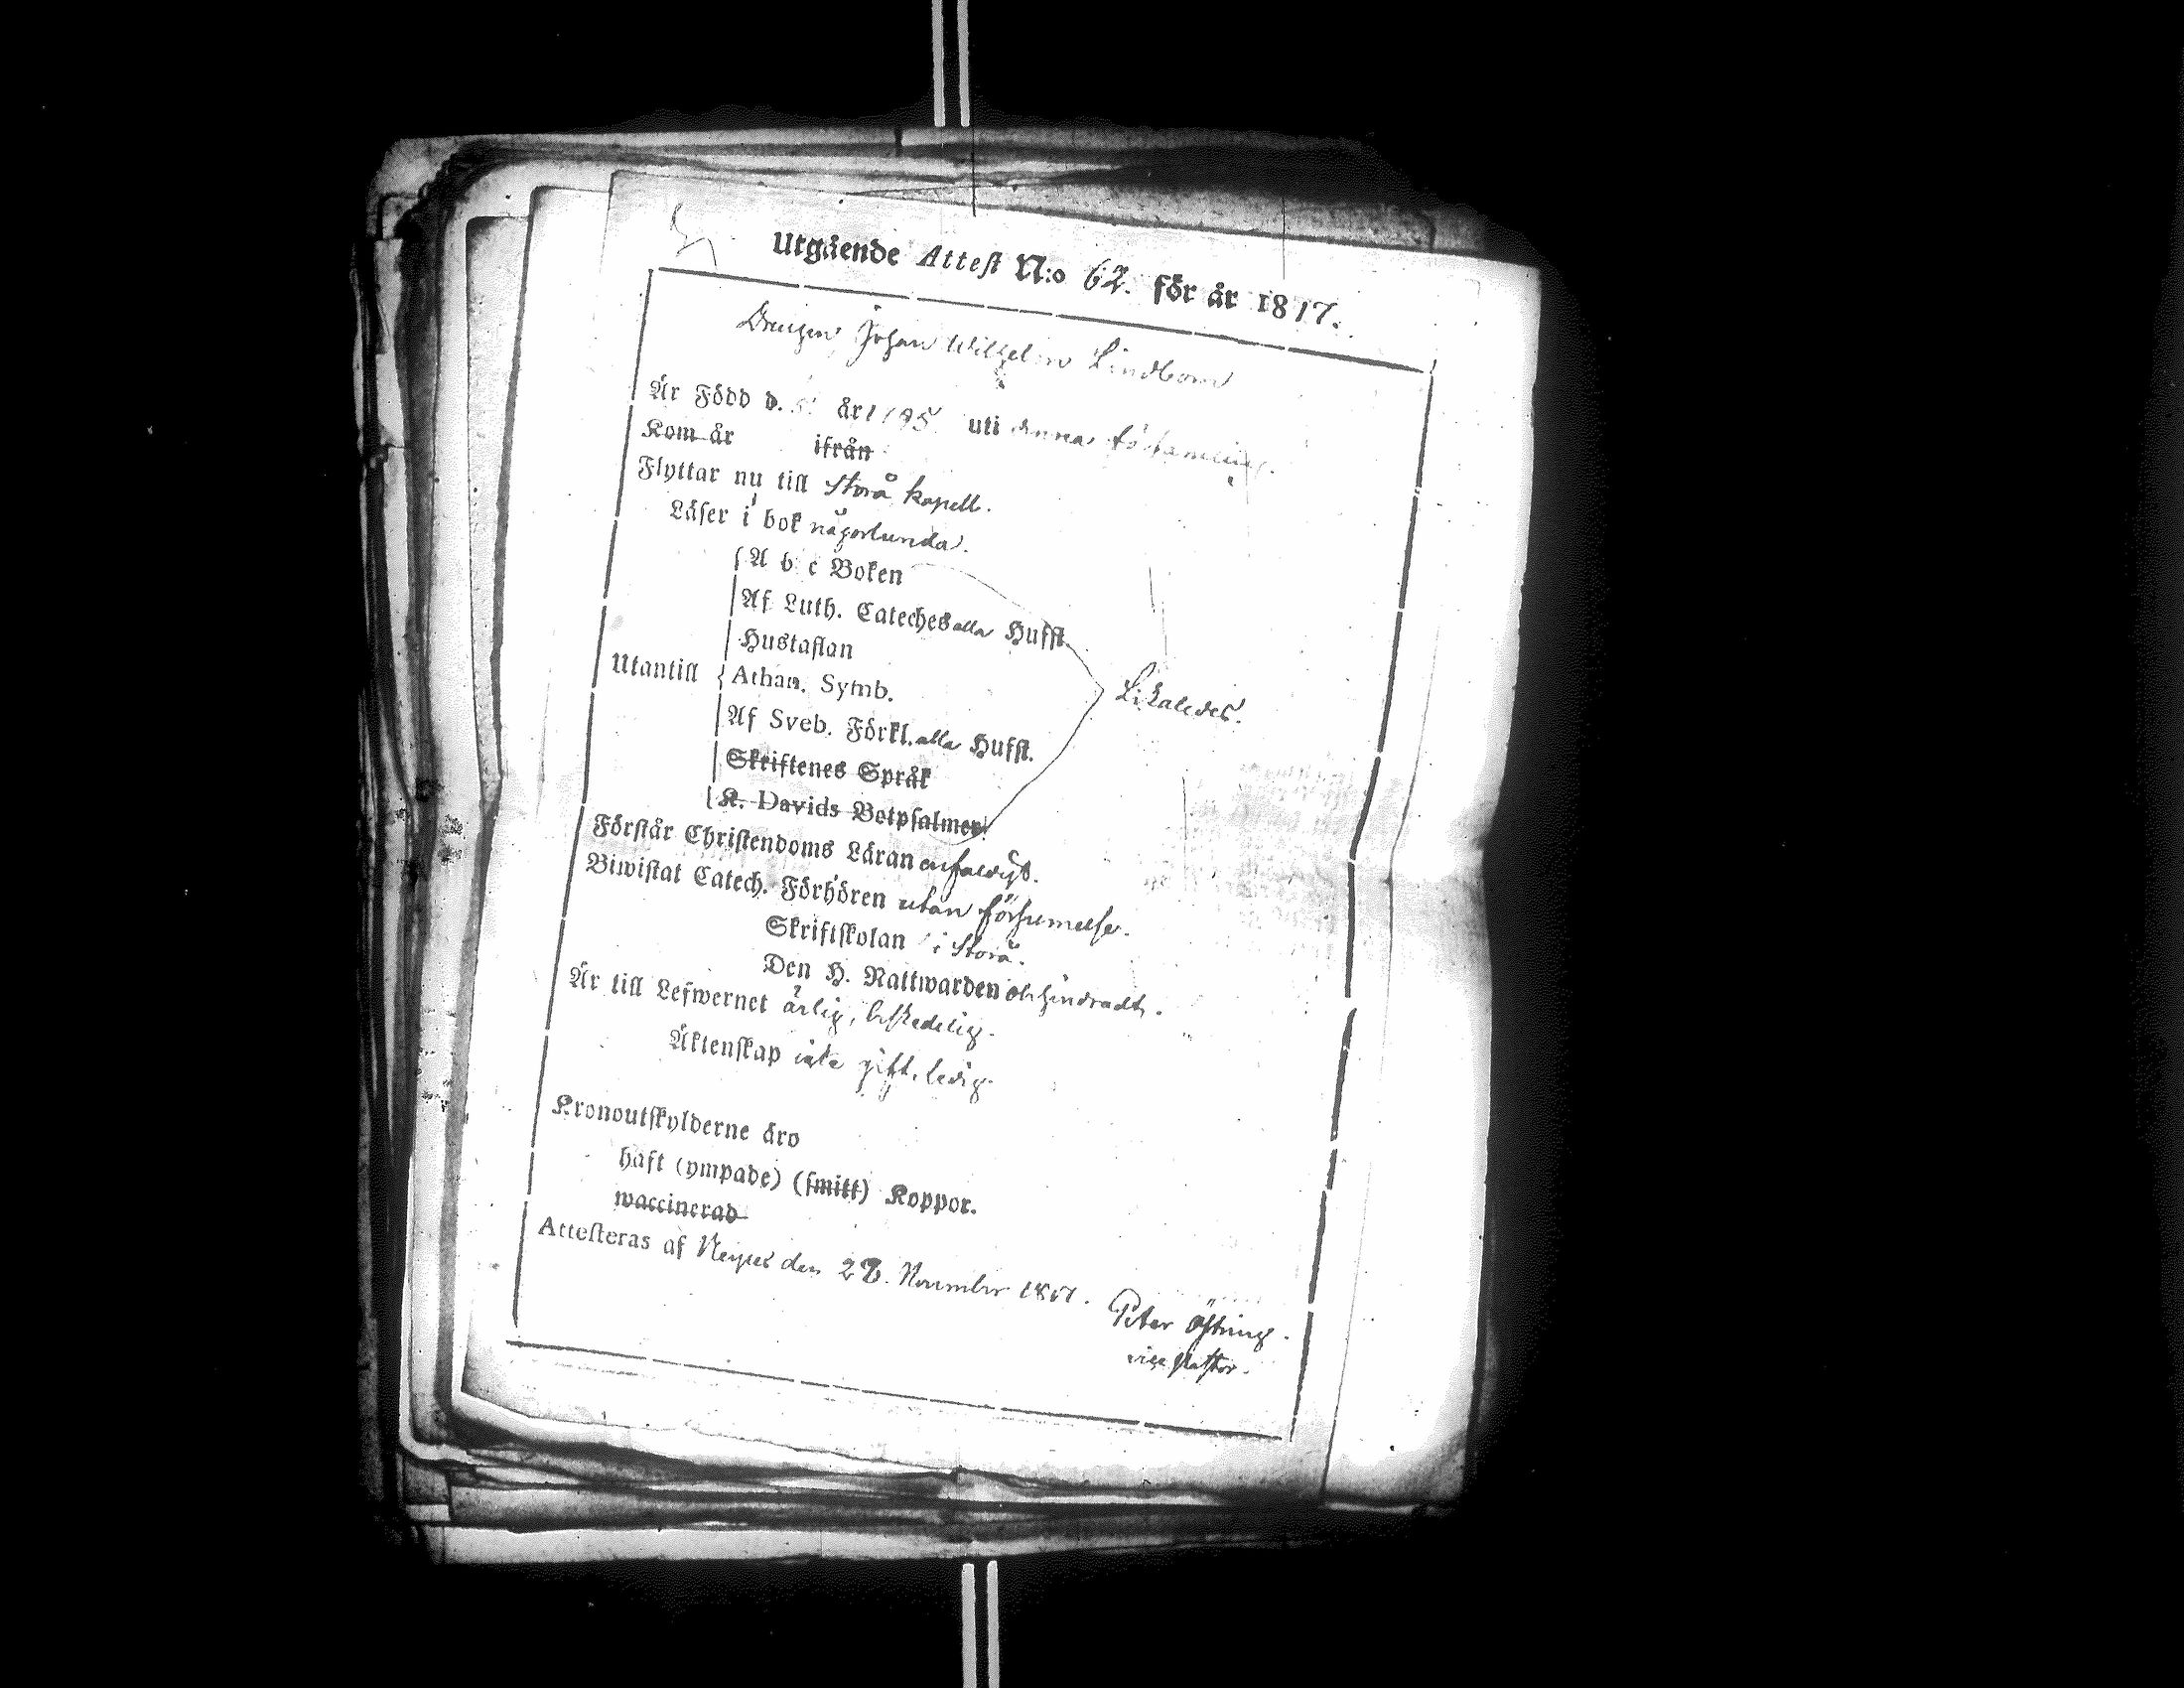 Utgående Attest N:o 62. för år 1817.
Drengen Johan Wilhelm Lindbom
Är Född d. 5. år 1795 uti denna församling.
Kom år ifrån
Flyttar nu till Storå kapell.
Läser i bok någorlunda.
A b c Boken
Af Luth. Cateches alla Hufst.
Hustaflan
Utantill Athan. Symb. Likaledes.
Af Sveb. Förkl. alla Hufst.
Skriftenes Språk
K. Davids Botpsalmer
Förstår Christendoms Läran enfaldigt.
Biwistat Catech. Förhören utan försumelse.
Skriftskolan i Storå.
Den H. Nattwarden obehindradt.
Är till Lefwernet ärlig, beskedelig.
Äktenskap inte gift, ledig.
Kronoutskylderne äro
haft (ympade) (smitt) Koppor.
waccinerad
Attesteras af den 28. November 1817.
Peter
vice Pastor.